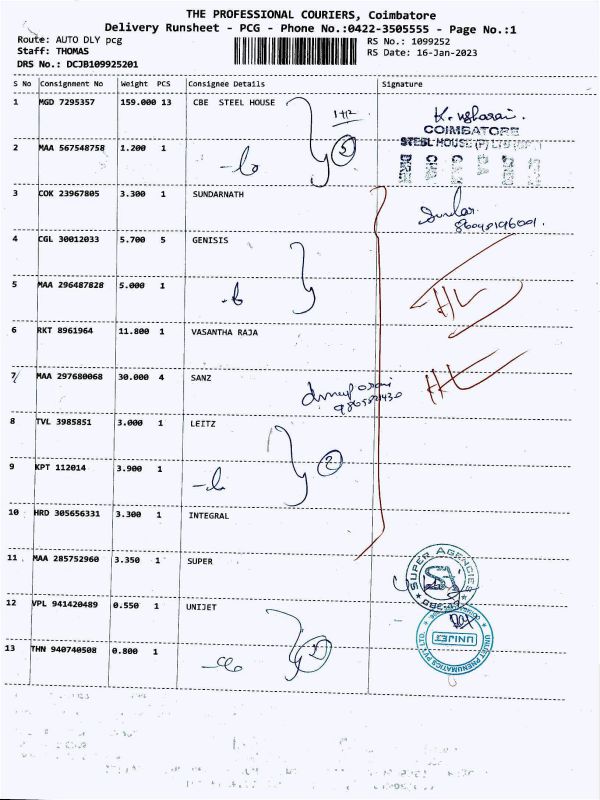 THE PROFESSIONAL COURIERS, Coimbatore
Delivery Runsheet - PCG - Phone No.:0422-3505555 - Page No.:1
Route: AUTO DLY pcg
RS No.: 1099252
Staff: THOMAS
RS Date: 16-Jan-2023
DRS No.: DCJB109925201
S No Consignment No Weight PCS Consignee Details Signature
1 MGD 7295357 159.000 13 CBE STEEL HOUSE
1+12
COIMBATORE
2 MAA 567548758 1.200 1
5
STEEL HOUSE (P) LTD
3 COK 23967805 3.300 1 SUNDARNATH
4 CGL 30012033 5.700 5 GENISIS
5 MAA 296487828 5.000 1
6 RKT 8961964 11.800 1 VASANTHA RAJA
7 MAA 297680068 30.000 4 SANZ
8 TVL 3985851 3.000 1 LEITZ
2
9 KPT 112014 3.900 1
10 HRD 305656331 3.300 1 INTEGRAL
11 MAA 285752960 3.350 1 SUPER
SUPER AGENCIES
12 VPL 941420489 0.550 1 UNIJET
UNIJET
UNIJET PNEUMATICS PVT. LTD.
13 THN 940740508 0.800 1